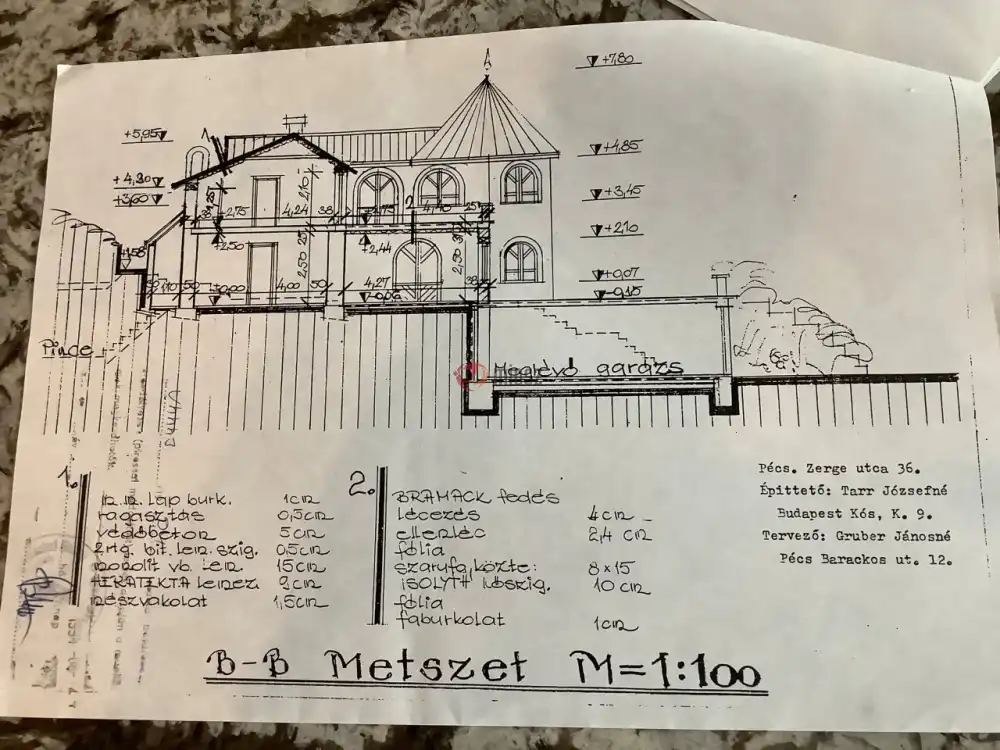 +7,80
+5,95
+4,85
+4,30
+3,60
+3,45
2,10
38
+2,75
4,24
38
+2,75
4,40
25
+2,10
+2,50
2,50
25
+2,44
2,50
30
+1,58
+0,07
±0,00
4,00
50
4,27
-0,06
38
-0,15
Pince
Meglévő garázs
1.
lap burk. 1cm
ragasztás 0,5cm
védőbeton 5cm
2rtg. bit. lem. szig. 0,5cm
monolit vb. lem. 15cm
HERATEKTA lemez 9cm
mészvakolat 1,5cm
2.
BRAMACK fedés
lécezés 4cm
ellenléc 2,4 cm
fólia
szarufa, közte: 8x15
ISOLYTH hőszig. 10cm
fólia
faburkolat 1cm
Pécs. Zerge utca 36.
Építtető: Tarr Józsefné
Budapest Kós, K. 9.
Tervező: Gruber Jánosné
Pécs Barackos ut. 12.
B-B Metszet M=1:100